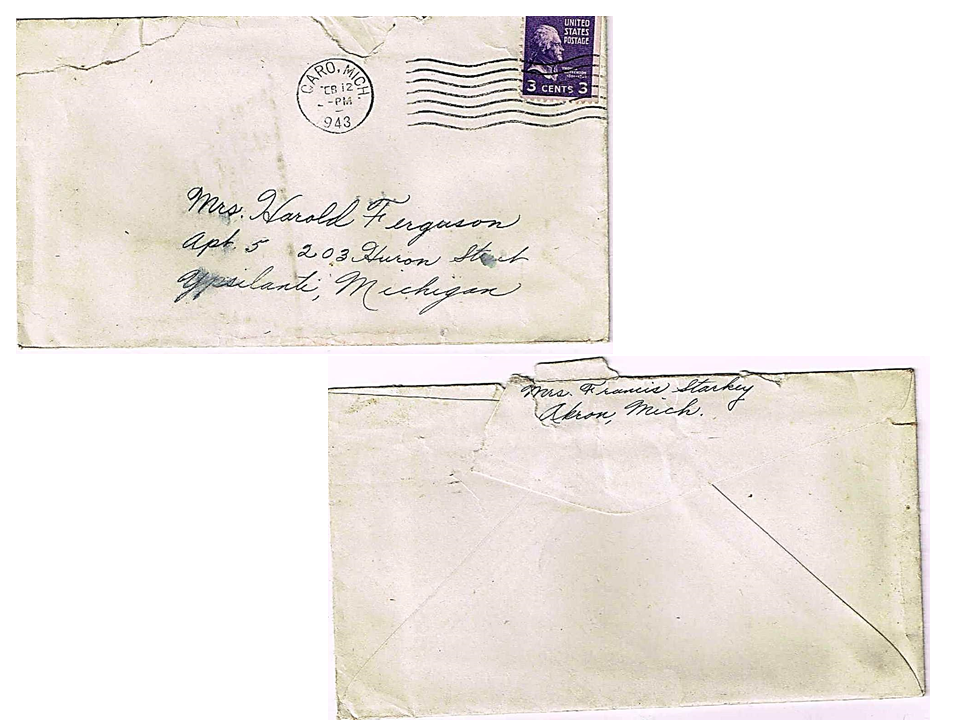 UNITED
STATES
POSTAGE
3 CENTS 3
CARO, MICH.
EB 12
-PM
943
Mrs. Harold Ferguson
Apt. 5 203 Huron Street
Ypsilanti, Michigan
Mrs. Francis Starkey
Akron, Mich.